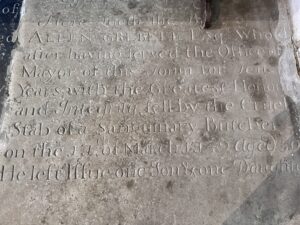 of
Here lieth the B
ed ALLEN GREBELL Esq. Who
after having served the Office
Mayor of this Town for Ten
Years with the Greatest Honour
and Integrity fell by the Cruel
Stab of a Sanguinary Butcher
on the of March 17 Aged 50
He left Issue one Son & one Daughter